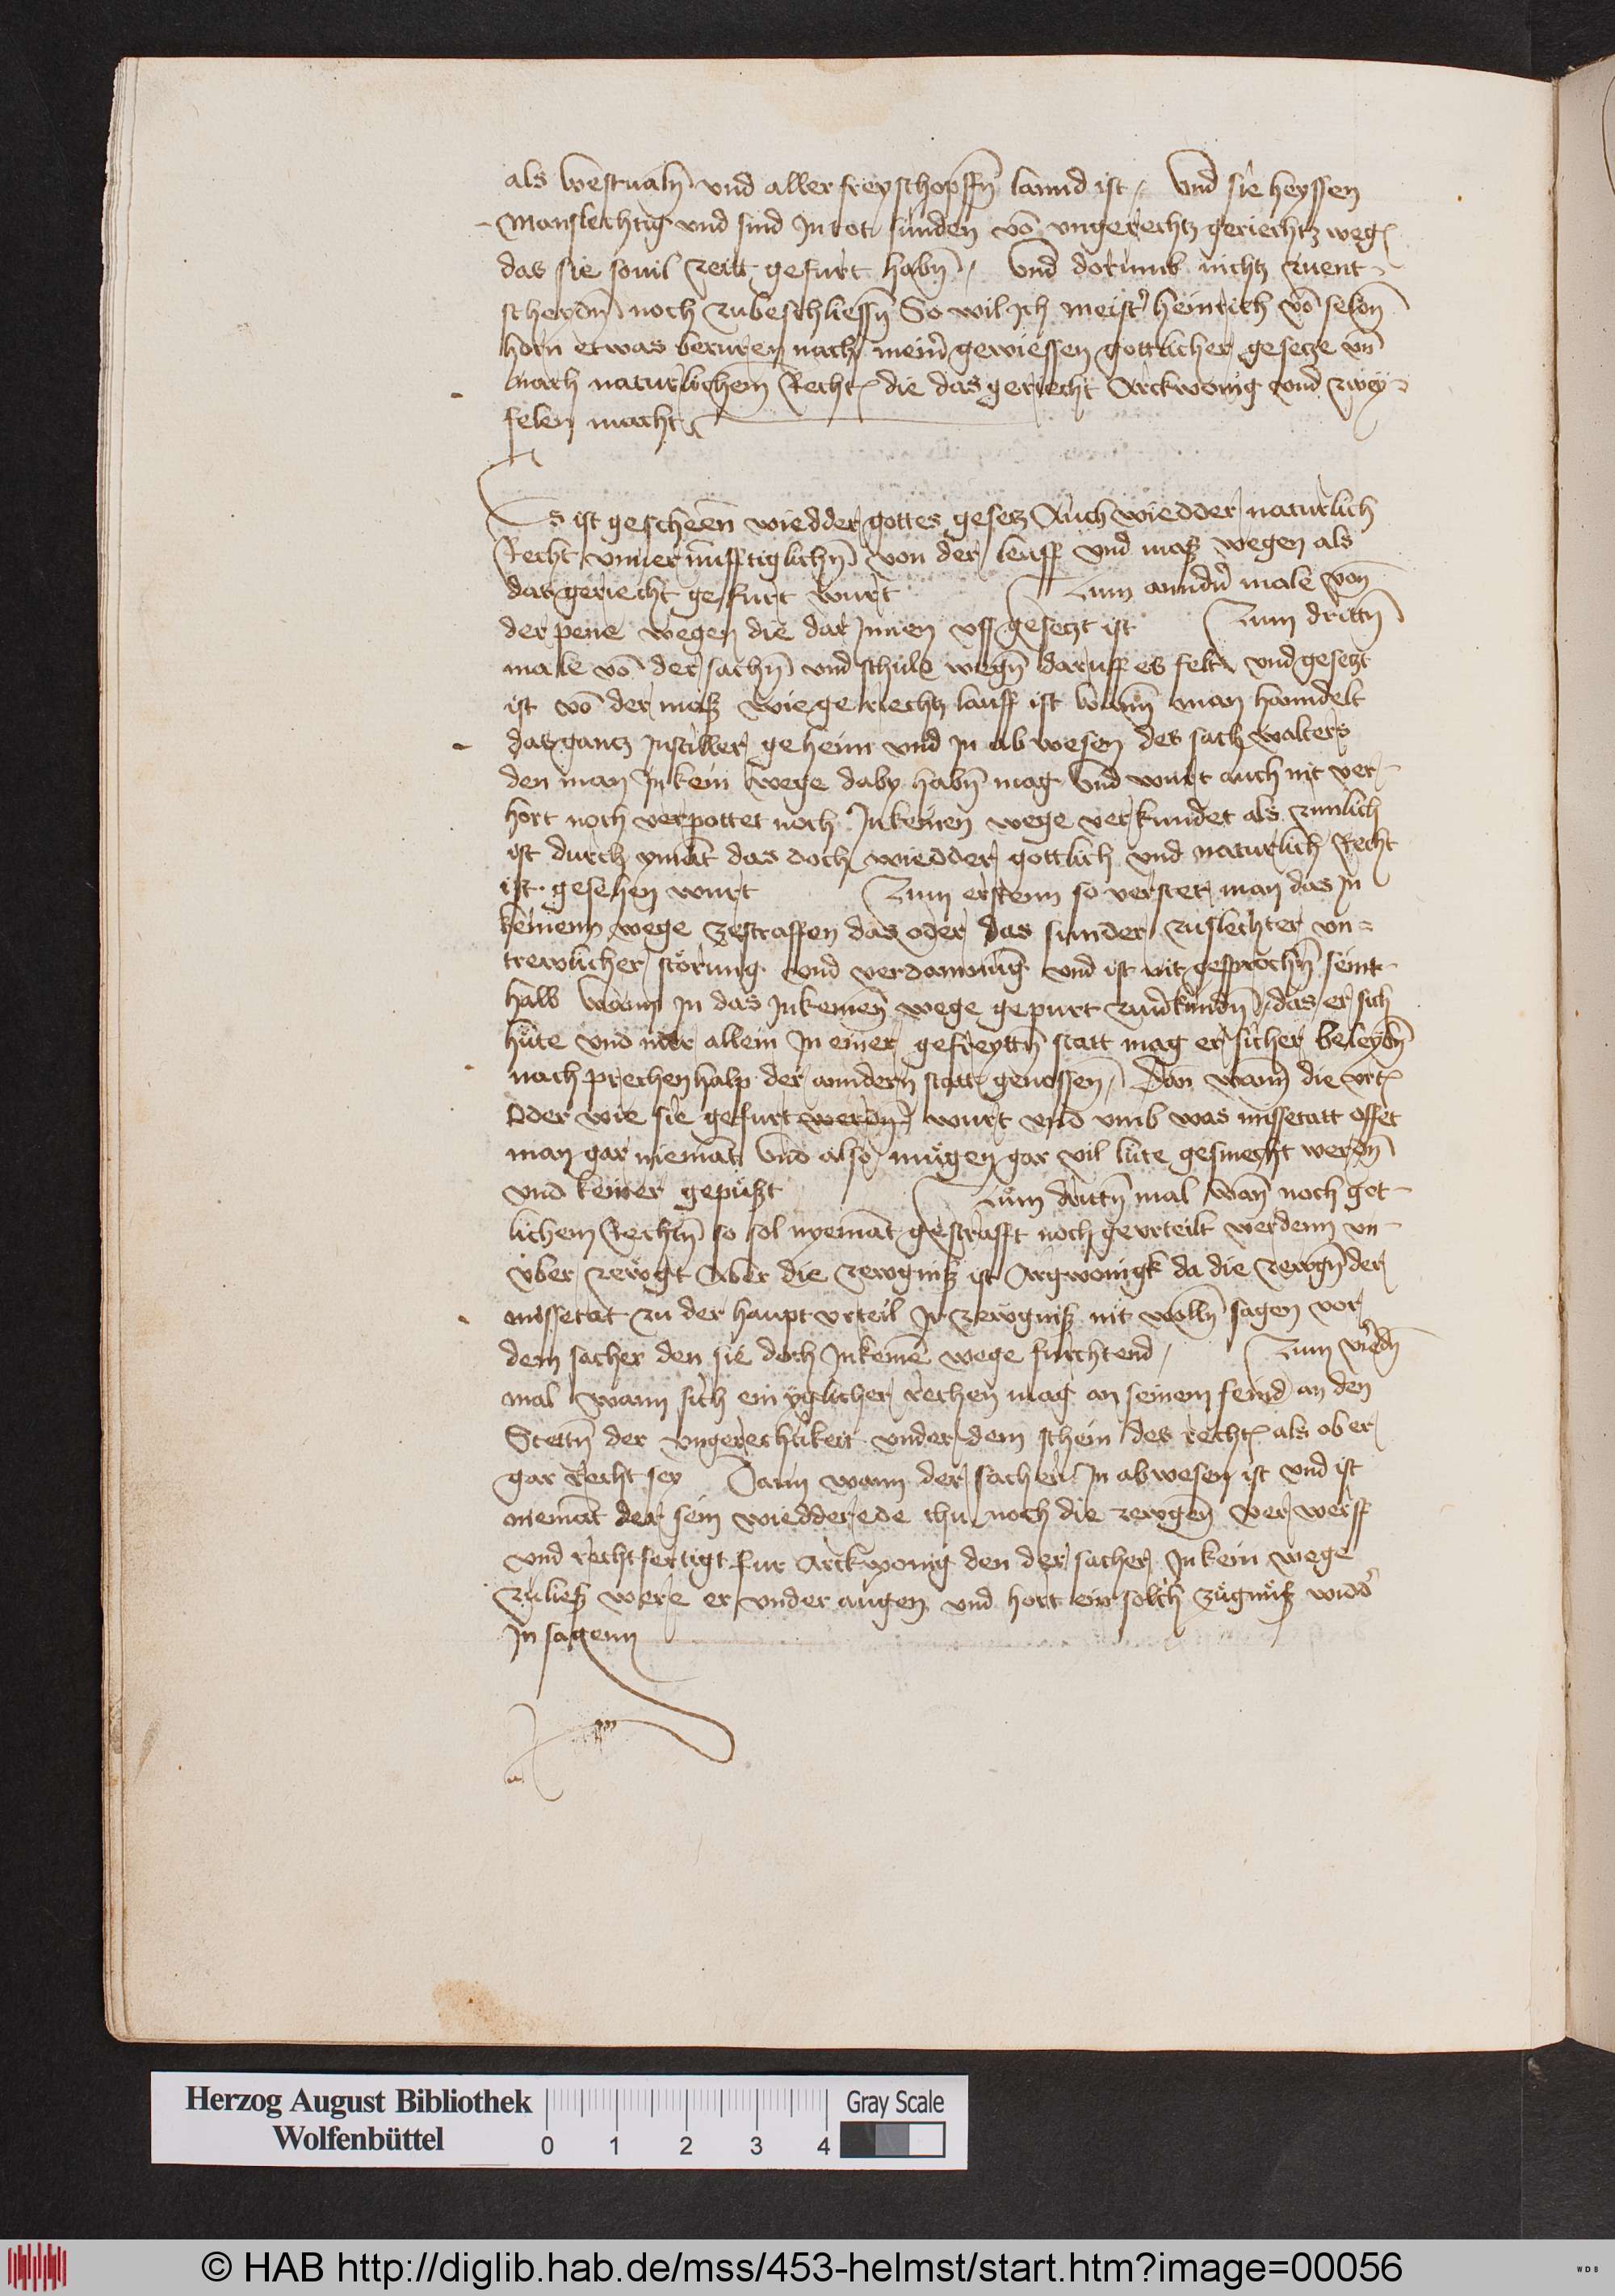 als westualn̄ vnd aller freyschopffn̄ lannd ist / Vnd sie heyssen
manslechtig vnd sind In tot sunden vō vngerechtz geriechtz weg
das sie souil zeitt gefurt habn̄ / Vnd dorumb nichtz zuent-
scheydn̄ noch zubeschliessn̄ So wil Ich meist' heinrich vō selbn̄
horn etwas beruren nach mein̄ gewiessen gottlicher gesetze vn̄
nach naturlichem̄ Recht die das geriecht Arckwonig vnd zwey=
felen macht
Es ist gescheen̄ wiedder gottes gesetz Auch wiedder naturlich
Recht vnuernufftiglichn̄ von der leuff vnd masz wegen als
das geriecht gefurt wurt Zum anndn̄ male von
der pene wegen die dar Innen vff gesetzt ist Zum drittn̄
male vō der sachn̄ vnd schuld wegn̄ daruff es felt vnd gesetzt
ist vō der masz wie geriechtz lauff ist wann̄ man hanndelt
das gantz Instiller geheim vnd In abwesen des sachwalters
den man Inkein wege daby habn̄ mag Vnd wurt auch nit ver-
hort noch verpottet noch Inkeinen wege verkundet als zimlich
ist durch ymāt das doch wiedder gottlich vnd naturlich Recht
ist gesehen wurt Zum erstenn so verstet man das In
keinenn wege zestraffen das oder das sunder zuslechter vn=
trewlicher störung vnd verdomnūg vnd ist nit gesprochn̄ seint-
halb wann In das Inkeinen̄ wege gepurt zuuerkundn̄ das er sich
hüte vnd allein In einer gefreyttn̄ statt mag er sicher beleybn̄
nach prechenhalp der anndern statt genossen / Dan wann̄ die vrt
Oder wie sie gefurt werdn̄ wurt vnd vmb was missetatt offet
man gar niemāt Vnd also mügen gar vil lüte gesmecht werdn̄
vnd keiner gepüszt Zum drittn̄ mal wan̄ noch got-
lichem Rechtn̄ so sol nyemāt gestrafft noch geurteilt werdenn vn-
vber zewgt Aber die zewgnisz ist Argwonigk da die zewgn̄ der
missetat zu der haupt vrteil Ir zewgnisz nit wolln̄ sagen vor
dem sacher den sie doch Inkeinē wege furchtend / Zum vierdn̄
mal wann sich ein yglicher rechen mag an seinem feind an den
Stettn̄ der vngerechtikeit vnder dem schein des recht als ob er
gar Recht sey Dann wann der sacher In abwesen ist vnd ist
niemāt der sein wiedderrede thu noch die zewgen̄ verwerff
vnd rechtfertigt fur Arckwonig den der sacher Inkein wege
zuliesz were er vnder augen vnd hort ein solch zügnüsz widd'
In sagenn
Herzog August Bibliothek
Wolfenbüttel
0 1 2 3 4
Gray Scale
© HAB http://diglib.hab.de/mss/453-helmst/start.htm?image=00056
WDB